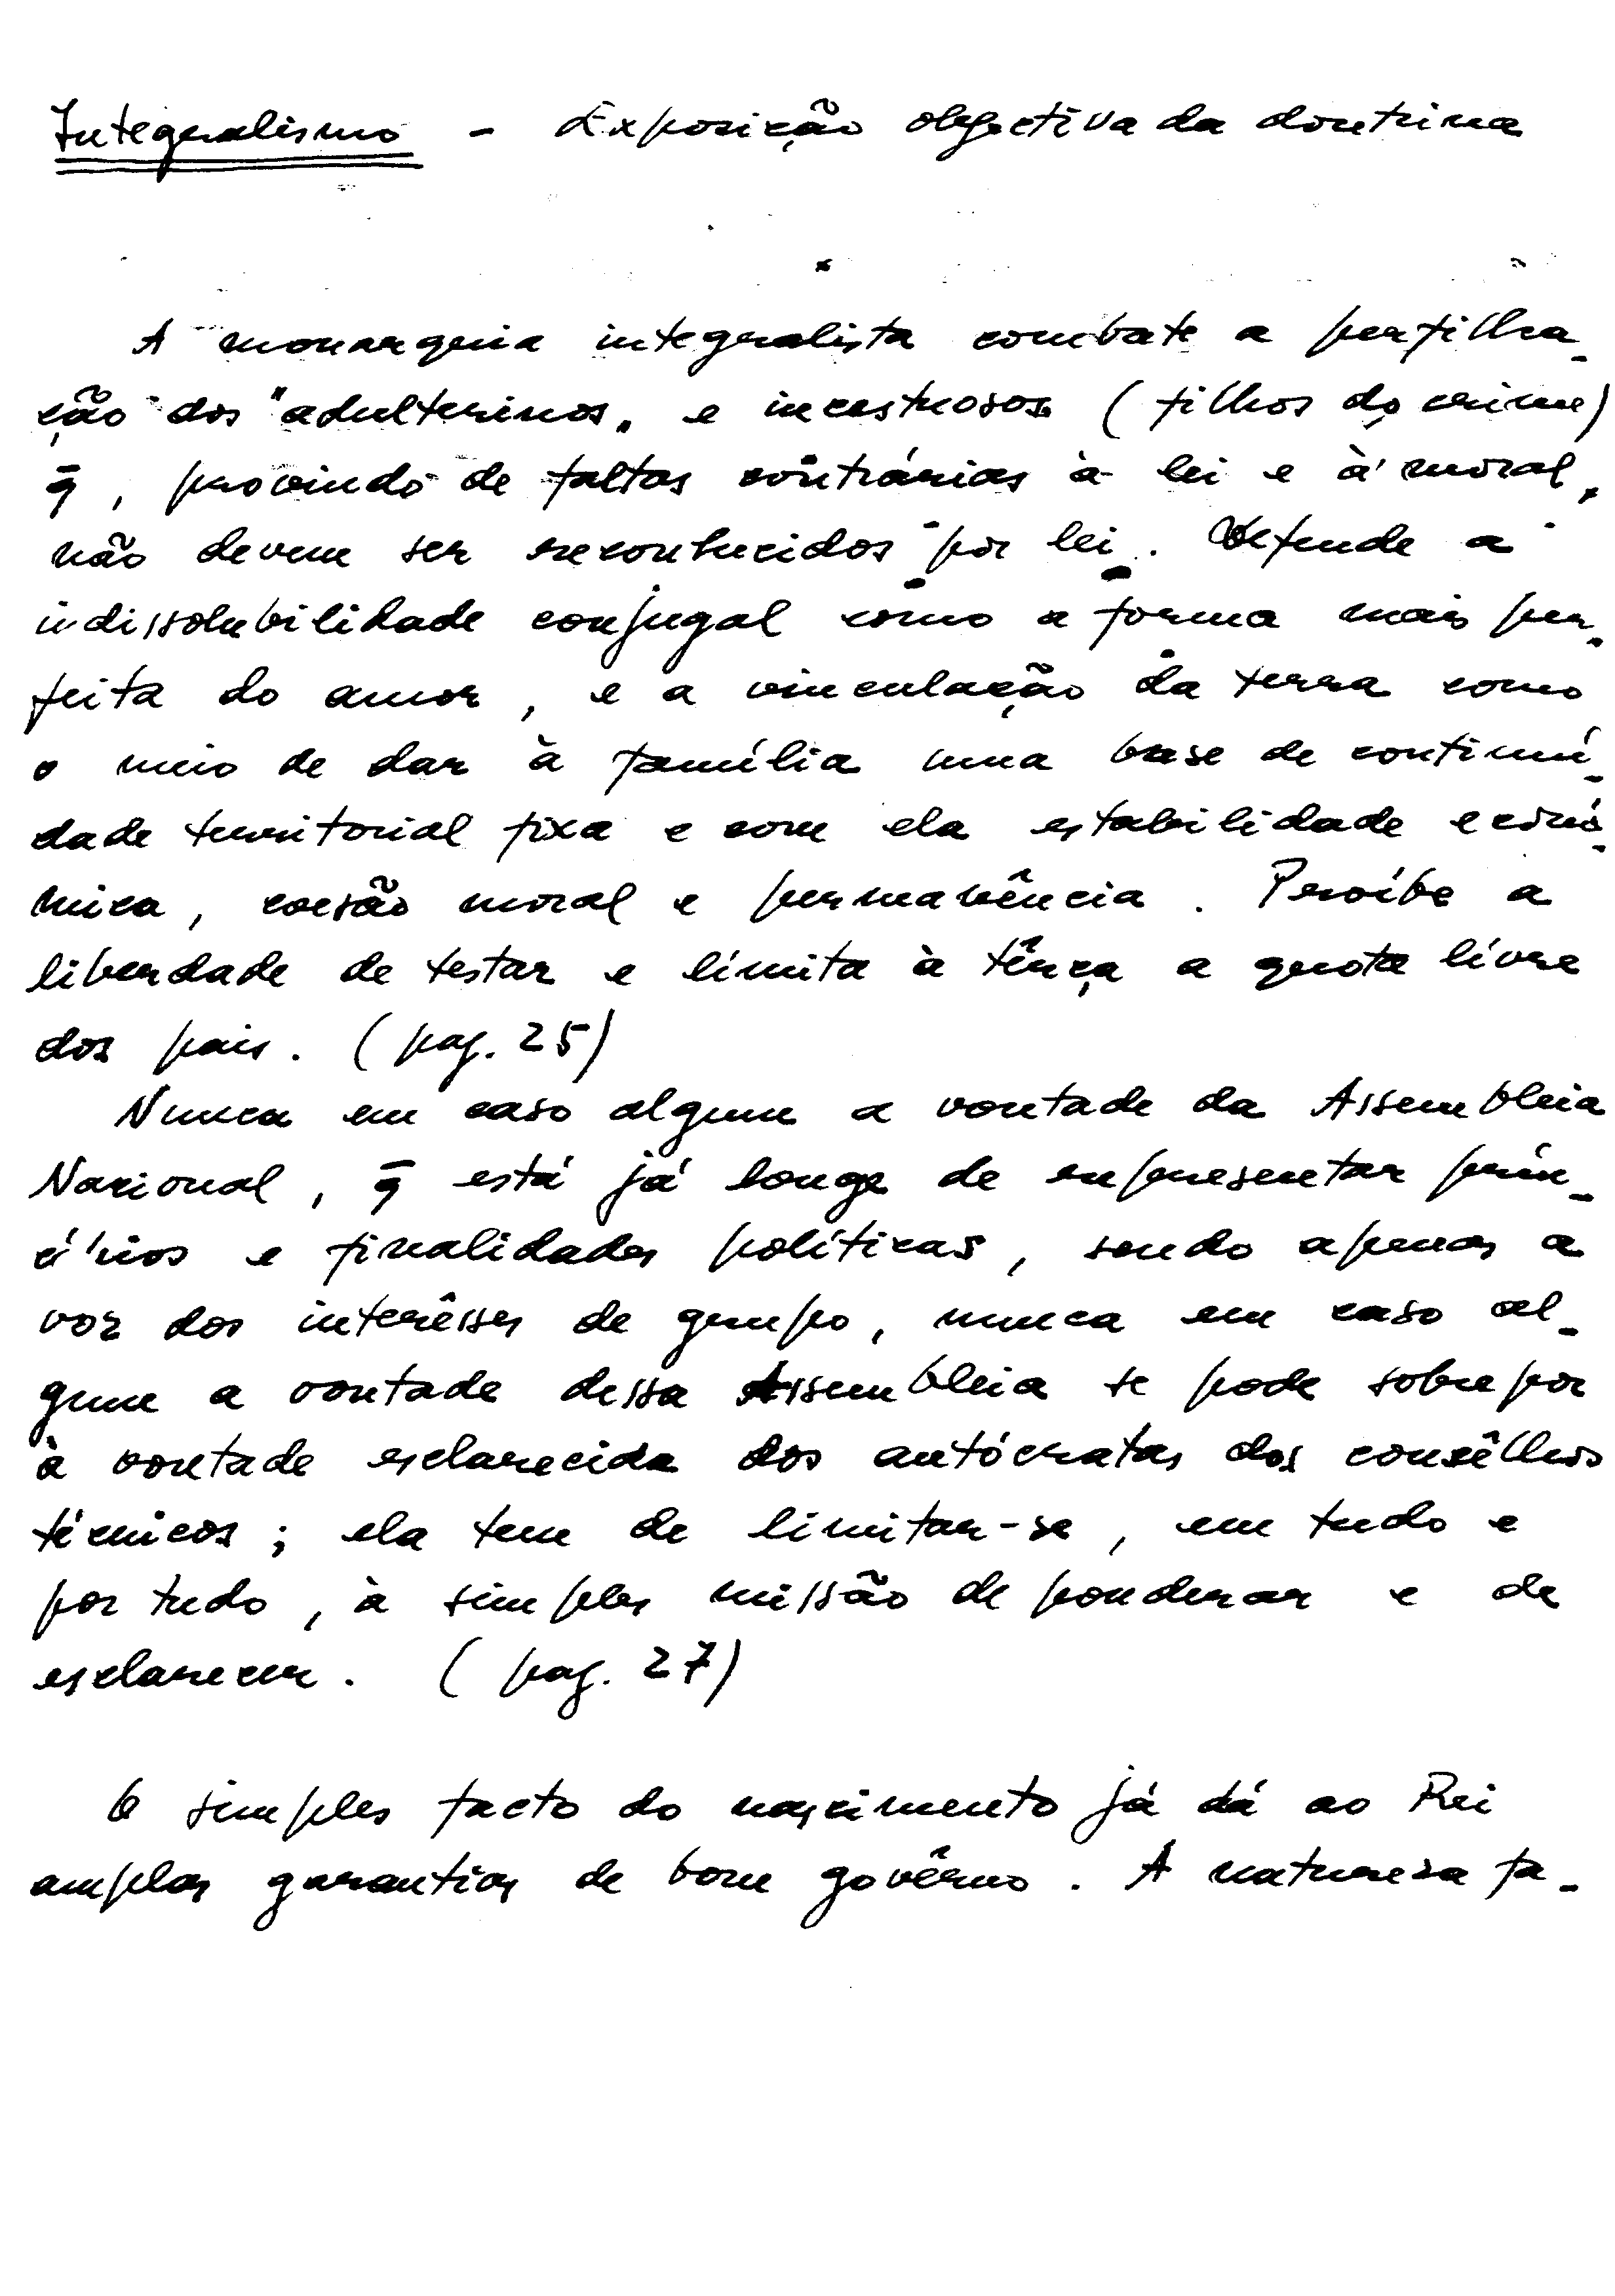 Integralismo - Exposição objectiva da doutrina
A monarquia integralista combate a perfilha-
ção dos "adulterinos" e incestuosos (filhos do crime)
q̄, provindo de faltas contrárias à lei e à moral,
não devem ser reconhecidos por lei. Defende a
indissolubilidade conjugal como a forma mais per-
feita do amor, e a vinculação da terra como
o meio de dar à família uma base de continuï-
dade territorial fixa e com ela estabilidade econó-
mica, coesão moral e permanência. Proíbe a
liberdade de testar e limita à têrça a quota livre
dos pais. (pag. 25)
Nunca em caso algum a vontade da Assembleia
Nacional, q̄ está já longe de representar prin-
cípios e finalidades políticas, sendo apenas a
voz dos interêsses de grupo, nunca em caso al-
gum a vontade dessa Assembleia se pode sobrepor
à vontade esclarecida dos autócratas dos consêlhos
técnicos; ela tem de limitar-se, em tudo e
por tudo, à simples missão de ponderar e de
esclarecer. (pag. 27)
O simples facto do nascimento já dá ao Rei
amplas garantias de bom govêrno. A natureza fa-